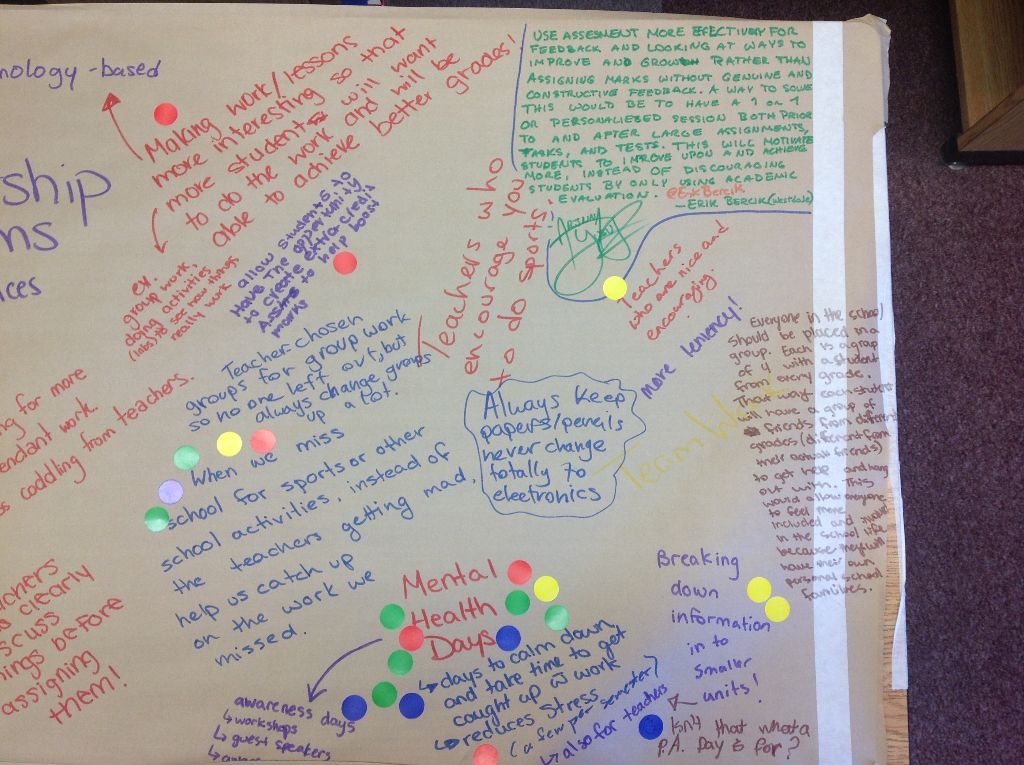 nology-based
ship
ns
ices
Making work/lessons
more interesting so that
more students will want
to do the work and will be
able to achieve better grades!
ex.
group work,
doing activities
(labs) to see how things
really work
allow students to
Have The oppertunity
to create extra credit
to help boost
marks
USE ASSESMENT MORE EFECTIVELY FOR
FEEDBACK AND LOOKING AT WAYS TO
IMPROVE AND GROW RATHER THAN
ASSIGNING MARKS WITHOUT GENUINE AND
CONSTRUCTIVE FEEDBACK. A WAY TO SOLVE
THIS WOULD BE TO HAVE A 1 on 1
OR PERSONALIESED SESSION BOTH PRIOR
TO AND AFTER LARGE ASSIGNMENTS,
TASKS, AND TESTS. THIS WILL MOTIVATE
STUDENTS TO IMPROVE UPON AND ACHIEVE
MORE, INSTEAD OF DISCOURAGING
STUDENTS BY ONLY USING ACADEMIC
EVALUATION. @Erik Bercik
—ERIK BERCIK (Westdale)
Teachers who
encourage you
to do sports!
Teachers
who are nice and
encouraging.
more leniency!
Team Work
Everyone in the school
should be placed in a
group. Each is a group
of 4 with a student
from every grade.
That way each student
will have a group of
friends from different
grades (different from
their actual friends)
to get help and hang
out with. This
would allow everyone
to feel more
included and
in the school life
because they will
have their own
personal school
families.
Teacher-chosen
groups for group work
so no one left out, but
always change groups
up a lot.
ng for more
endant work.
ss coddling from teachers.
When we miss
school for sports or other
school activities, instead of
the teachers getting mad,
help us catch up
on the work we
missed.
Always keep
papers/pencils
never change
totally to
electronics
achers
clearly
scuss
hings before
assigning
them!
Mental
Health
Days
↳ days to calm down
and take time to get
caught up w work
↳ reduces stress
(a few per semester)
↳ also for teachers
awareness days
↳ workshops
↳ guest speakers
Breaking
down
information
in to
smaller
units!
Isn't that what a
P.A. Day is for?